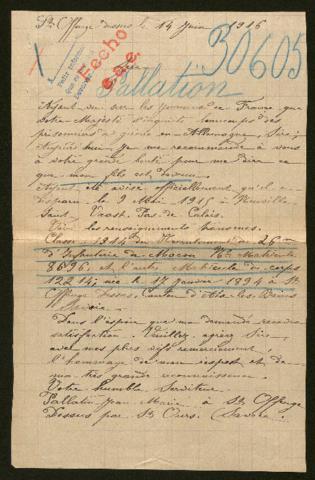 St Offenge dessus le 14 Juin 1916
30605
Fecho
Sire
Pallation
Ayant vu sur les journaux de France que
votre Majesté s'inquiete beaucoup des
prisonniers de guerre en Allemagne, Sire,
je me recommande à vous
à votre grande bonté pour me dire ce
que mon fils est devenu.
Ayant été avisé officiellement qu'il a
disparu le 9 Mai 1915 à Neuville
Saint Vaast Pas de Calais.
Voici les renseignements
Classe 1914 du Recrutement
d'Infanterie de Macon No Matricule
8696 et l'autre Matricule du corps
12214, né le 17 Janvier 1894 à St
Offenge Dessus, Canton d'Aix-les-Bains
Savoie.
Dans l'espoir que ma demande recevra
satisfaction Veuillez agréer Sire
avec mes plus vifs remerciements
l'hommage de mon respect et de
ma très grande reconnaissance.
Votre humble Serviteur
Pallatin Jean Marie à St Offenge
Dessus par St Ours. (Savoie)